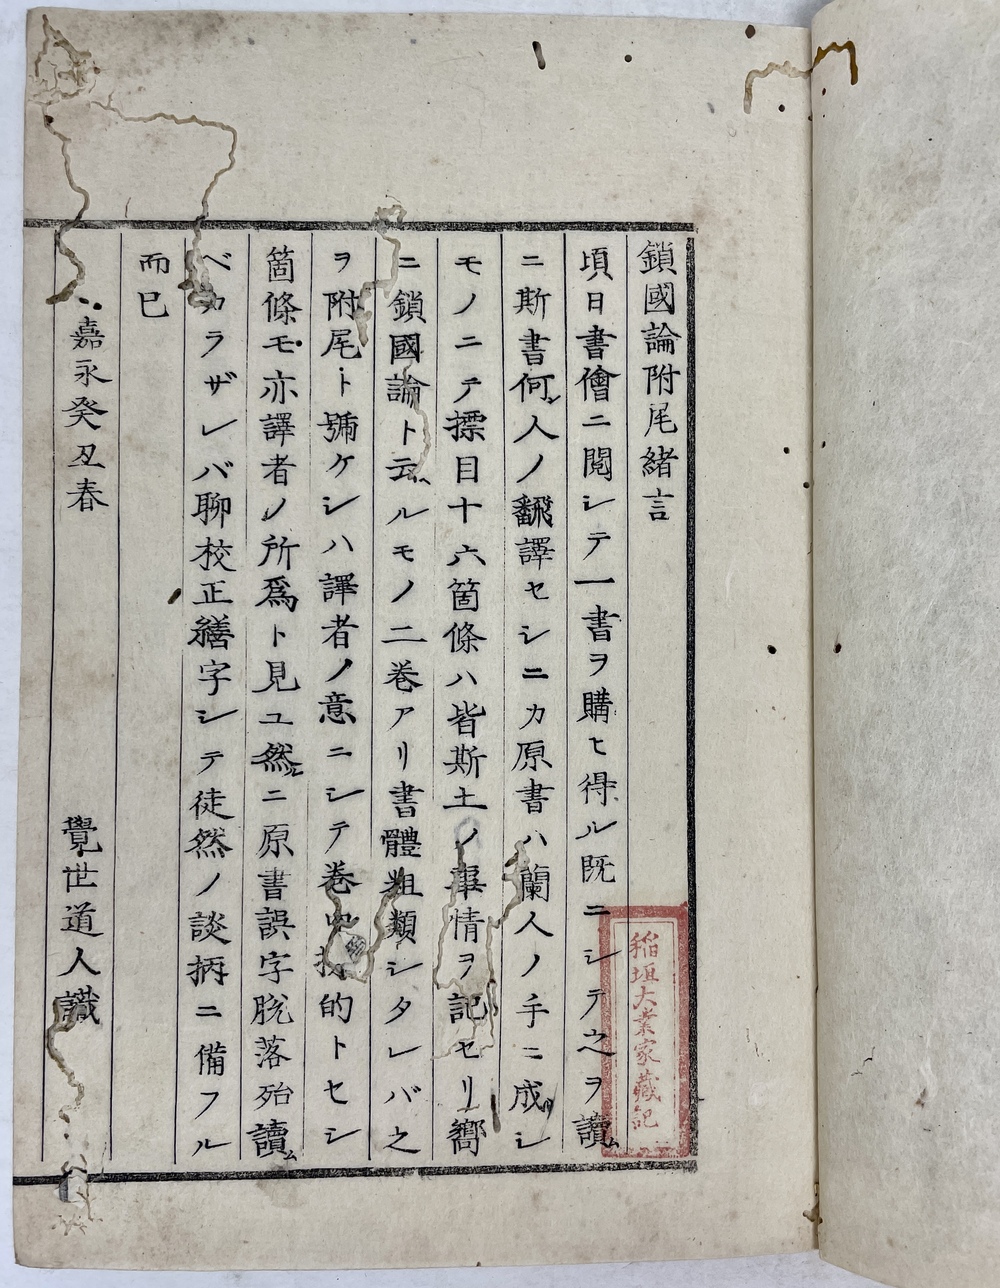 鎖國論附尾緒言
頃日書儈ニ閲シテ一書ヲ購ヒ得ル既ニシテ之ヲ讀ム
ニ斯書何人ノ飜譯セシニカ原書ハ蘭人ノ手ニ成リシ
モノニテ摽目十六箇條ハ皆斯土ノ事情ヲ記セリ嚮
ニ鎖國論ト云ヘルモノ二巻アリ書體粗類シタレバ之
ヲ附尾ト號ケシハ譯者ノ意ニシテ巻中 的トセシ
箇條モ亦譯者ノ所爲ト見ユ然レニ原書誤字脱落殆讀ム
ベカラザレバ聊校正繕字シテ徒然ノ談柄ニ備フル
而已
嘉永癸丑春 覺世道人識
稲垣大業家藏記